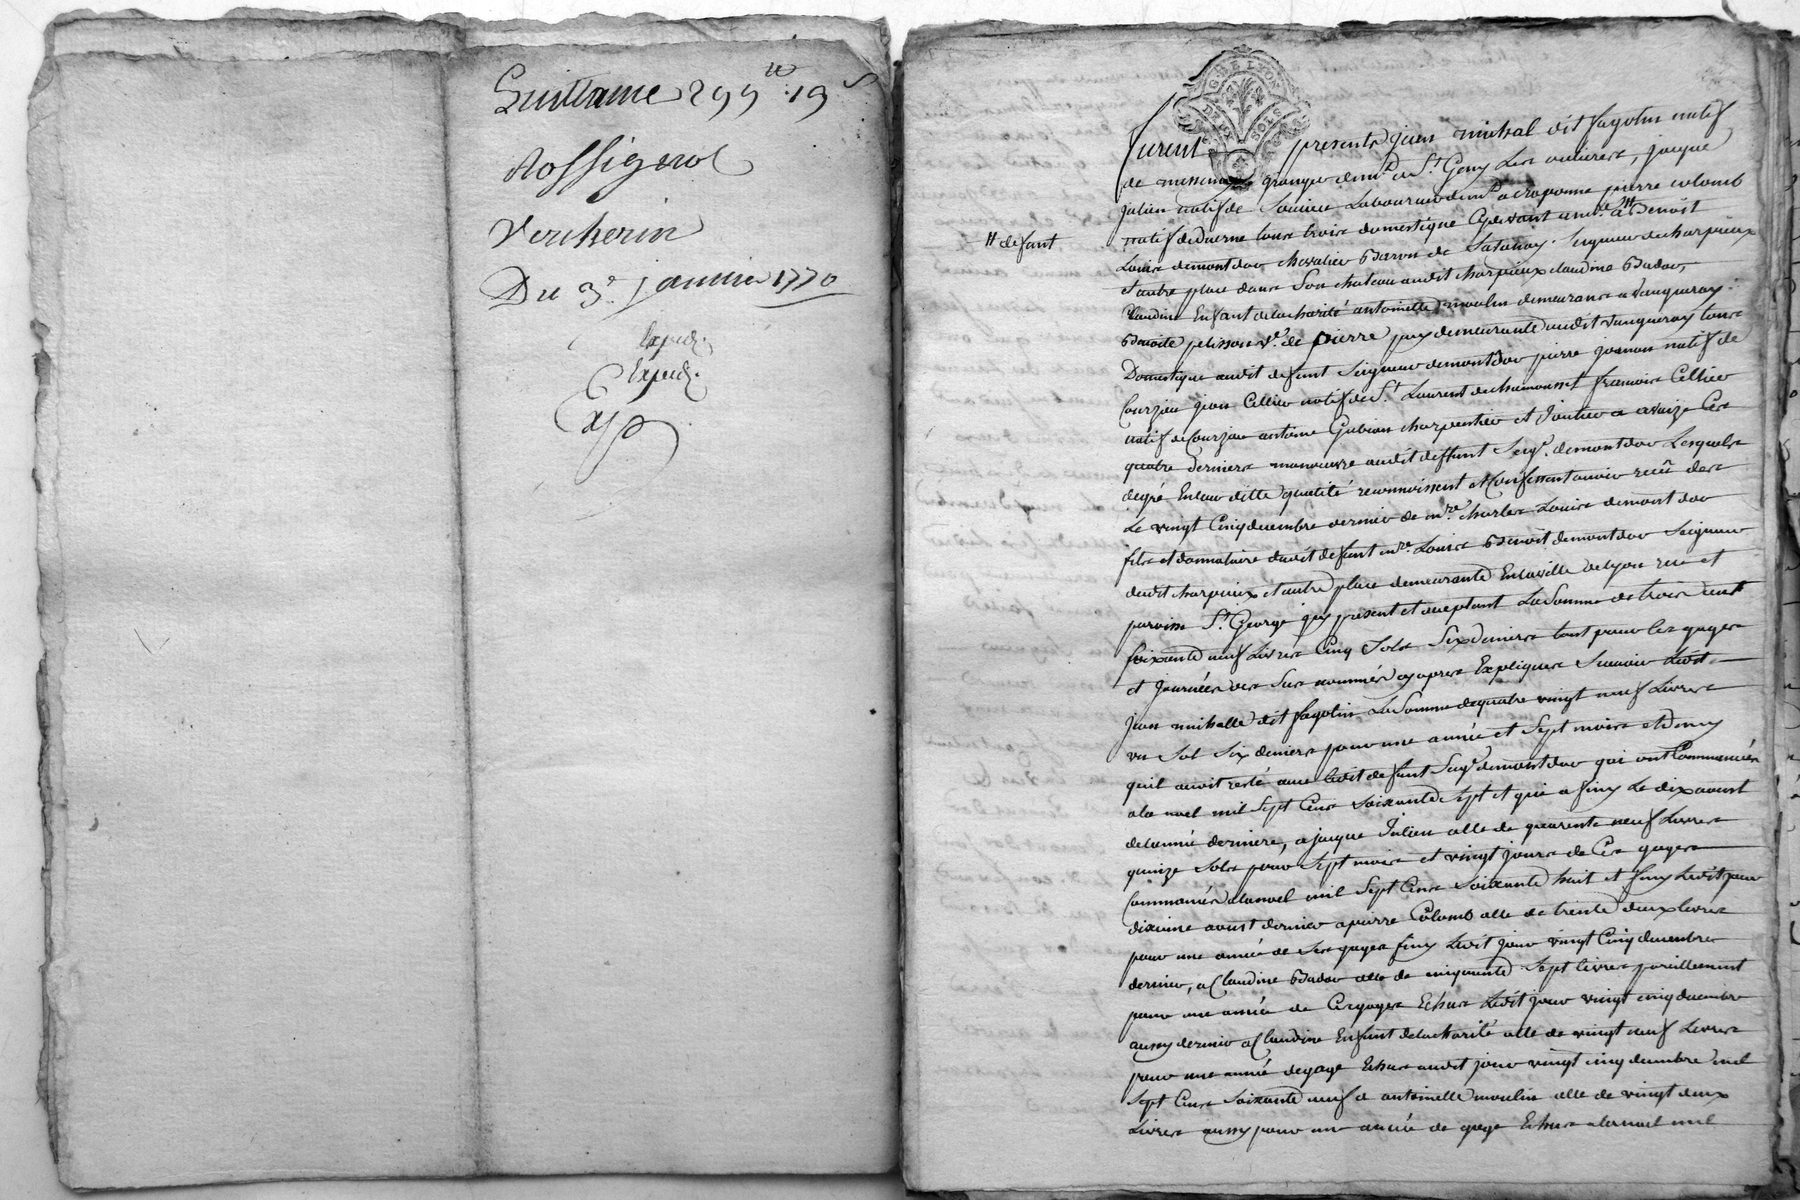 Guillaume 299 tt 19 s
Rossignol
Vercherin
Du 3e. janvier 1770
Expedié.
Expedié.
Exp
G. DE LYON
DEUX SOLS
furent presents jean michal dit fagotin natif
de messimy granger demt. a St. Geny Les oulieres, jacque
Julien natif de Soucieu Laboureur demt. a craponne pierre colomb
natif de Duerne tous trois domestique Cydevant a mre. # Benoist
# defant
Louis demontdor chevalier Baron de Seigneur de charpieux
et autre place dans Son chateau audit charpieux claudine Bador,
Claudine Enfant de la charité antoinette moulin demeurance a vaugneray
Benoite pelisson ve. de pierre demeurante audit vaugneray tous
Domestique audit defunt Seigneur demontdor pierre natif de
Courzieu jean Cellier natif de St. Laurent de chamousset francois Cellier
natif de Courzieu antoine Gubian charpentier et a avaize Ces
quatre derniers manoeuvre audit deffunt Seigr. demontdor Lesquels
degré Enlaur ditte qualité reconnoissent et Confessent avoir recû des
Le vingt Cinq decembre dernier de mre. charles Louis demontdor
fils et donnataire dudit defunt mre. Louis Benoit demontdor Seigneur
dudit charpieux et autre place demeurante En la ville de Lyon rue et
paroisse St. George icy present et aceptant La Somme de trois cent
soixante neuf Livres Cinq Sols Six deniers tant pour les gages
et journées des Sus nommés cy apres Expliques Scavoir Ledit
jean michalle dit fagotin La Somme de quatre vingt neuf Livres
un Sol Six deniers pour une année et Sept mois et demy
quil auroit resté avec ledit defunt Seigr. demontdor qui ont Commencés
ala noel mil Sept Cens Soixante Sept et qui a finy Le dix aoust
delannée derniere, a jacque Julien celle de quarente neuf Livres
quinze Sols pour Sept mois et vingt jours de Ces gages
Commancés ala noel mil Sept Cens Soixante huit et finy Ledit jour
dixieme aoust dernier a pierre Colomb celle de trente deux livres
pour une année de Ses gages finy Ledit jour vingt Cinq decembre
dernier, a Claudine Bador celle de cinquante Sept livres pareillement
pour une année de Ces gages Echus Ledit jour vingt cinq decembre
aussy dernier a Claudine Enfant de la charité celle de vingt neuf Livres
pour une année de gage Echus audit jour vingt cinq decembre mil
Sept Cens Soixante neuf a antoinette moulin celle de vingt deux
Livres aussy pour une année de gage Echus alanoel mil